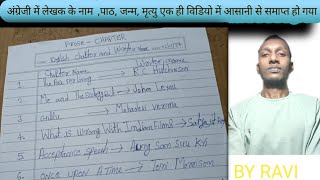 अंग्रेजी में लेखक के नाम ,पाठ, जन्म, मृत्यु एक ही विडियो में आसानी से समाप्त हो गया
PROSE - CHAPTER
English Chapter and Writer Name
Chapter Name Writer name
1. The Long R.C. Hutchinson
2. Me and The → John
3. Gillu → Mahadevi Verma
4. What is Wrong With Indian Films → Satyajit Ray
5. Acceptance speech → Aung San Suu Kyi
6. Once upon A Time → Toni Morrison
BY RAVI